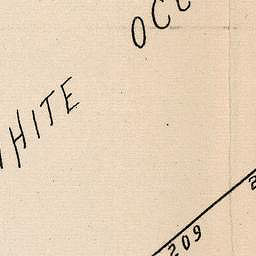 OCC
WHITE
209
2